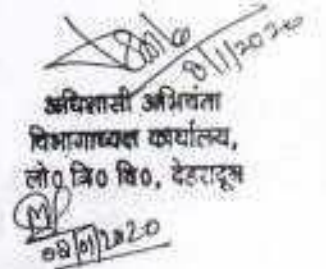 8/1/2020
अधिशासी अभियंता
विभागाध्यक्ष कार्यालय,
लो0 नि0 वि0, देहरादून
08/01/2020